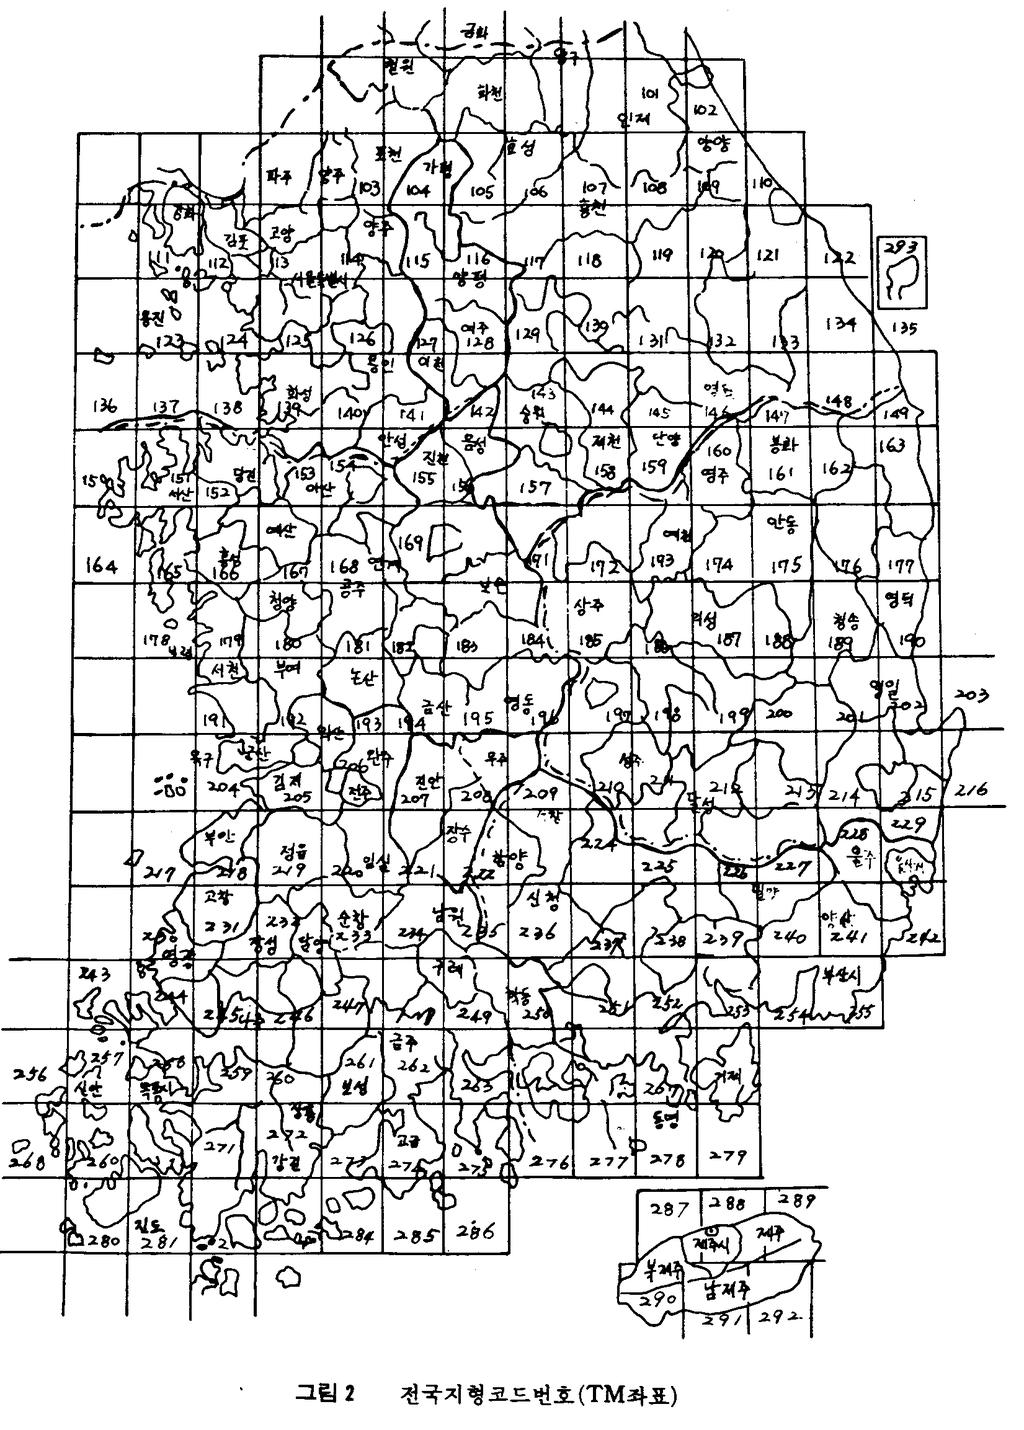 금화
철원
양구
화천
101
인제
102
양양
포천
가평
횡성
파주
양주
103
104
105
106
107
108
109
110
홍천
강화
김포
고양
양주
111
112
113
114
115
116
117
118
119
120
121
122
293
서울특별시
양평
옹진
123
124
125
126
127
128
여주
129
139
131
132
133
134
135
용인
이천
화성
136
137
138
139
140
141
142
143
144
145
146
147
148
149
안성
음성
진천
제천
단양
160
봉화
163
151
서산
152
153
154
아산
155
157
158
159
영주
161
162
예산
169
안동
164
165
홍성
166
167
168
공주
172
193
174
175
176
177
청양
상주
의성
청송
영덕
178
보령
179
180
181
182
183
184
185
187
188
189
190
서천
부여
논산
금산
영동
영일
203
191
192
193
194
195
196
197
198
199
200
201
202
옥구
군산
206
완주
무주
204
김제
205
전주
진안
207
208
209
210
달성
214
215
216
부안
정읍
임실
장수
함양
224
228
229
울주
217
218
219
220
221
222
225
226
227
고창
231
순창
233
남원
234
235
신청
236
237
238
239
240
241
242
장성
담양
영광
243
244
구례
부산시
245
246
247
249
250
251
252
253
254
255
금주
256
257
신안
258
목포시
259
260
261
보성
262
263
거제
268
271
272
강진
273
고흥
274
275
276
277
278
279
통영
280
진도
281
284
285
286
287
288
289
제주시
제주
북제주
290
남제주
291
292
그림 2 전국지형코드번호(TM좌표)